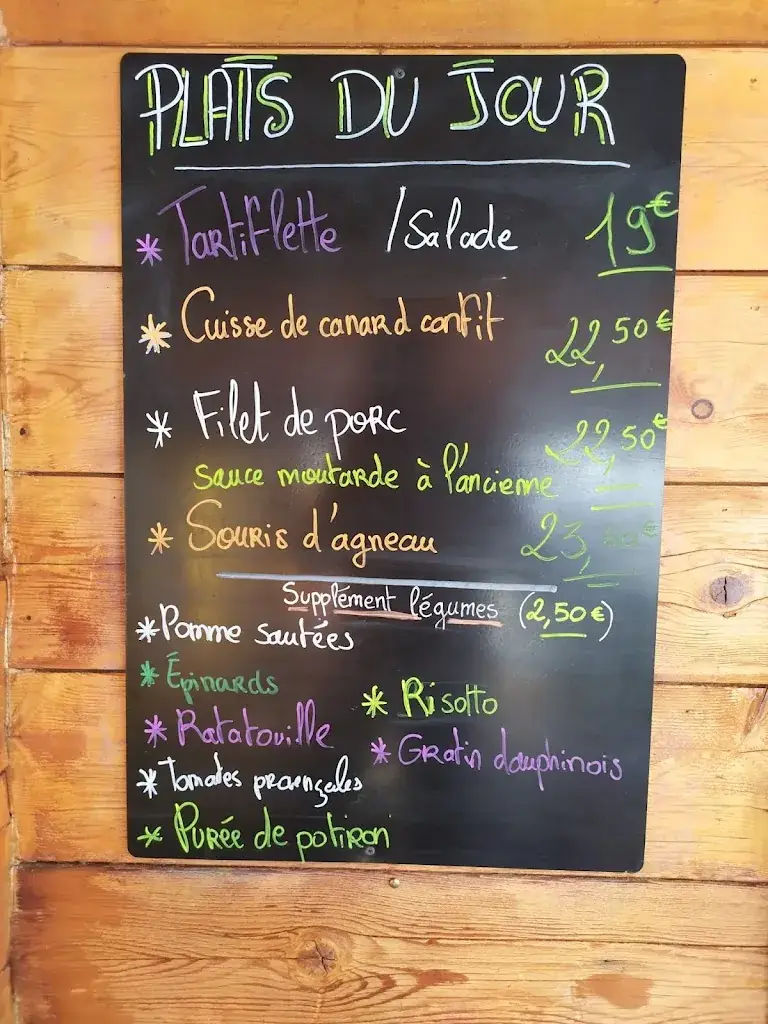 PLATS DU JOUR
* Tartiflette /Salade 19€
* Cuisse de canard confit 22,50€
* Filet de porc 22,50€
sauce moutarde à l'ancienne
* Souris d'agneau 23,50€
Supplément légumes (2,50€)
* Pomme sautées
* Épinards
* Risotto
* Ratatouille
* Gratin dauphinois
* Tomates provençales
* Purée de potiron